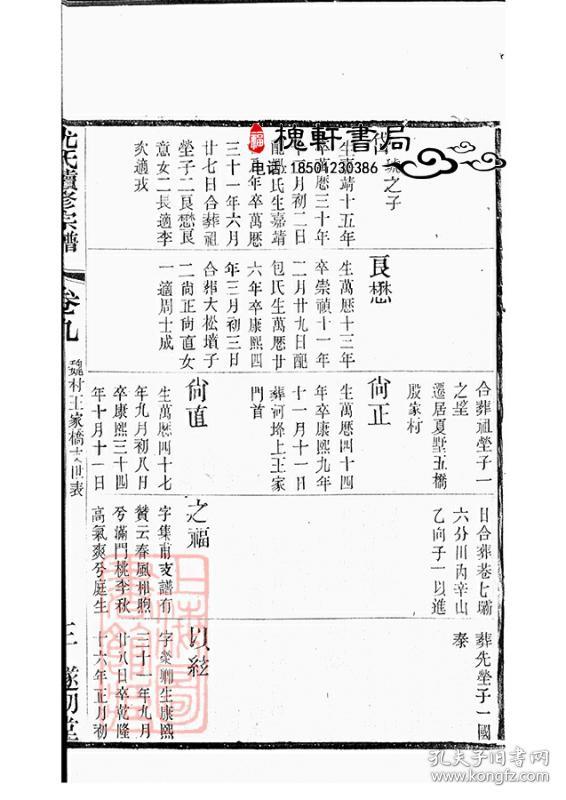 槐軒書局
电话 18504230386
之子
生嘉靖十五年
萬厯三十年
月初二日
氏生嘉靖
年卒萬厯
三十一年六月
廿七日合葬祖
塋子二良懋良
意女二長適李
次適戎
良懋
生萬厯十三年
卒崇禎十一年
二月廿九日配
包氏生萬厯廿
六年卒康熙四
年三月初三日
合葬大松墳子
二尙正尙直女
一適周士成
合葬祖塋子一
之
遷居夏墅五橋
殷家村
尙正
生萬厯四十四
年卒康熙九年
十一月十一日
葬河垰上王家
門首
尙直
生萬厯四十七
年九月初八日
卒康熙三十四
年十月十一日
日合葬巷七壩
六分川內辛山
乙向子一以進
之福
字集甫支譜有
贊云春風和煦
兮滿門桃李秋
高氣爽兮庭生
葬先塋子一國
泰
以絃
字 生康熙
三十一年九月
廿八日卒乾隆
十六年正月初
氏續修宗譜
卷九
魏村王家橋 世表
三
遂初堂
孔夫子旧书网
www.kongfz.com